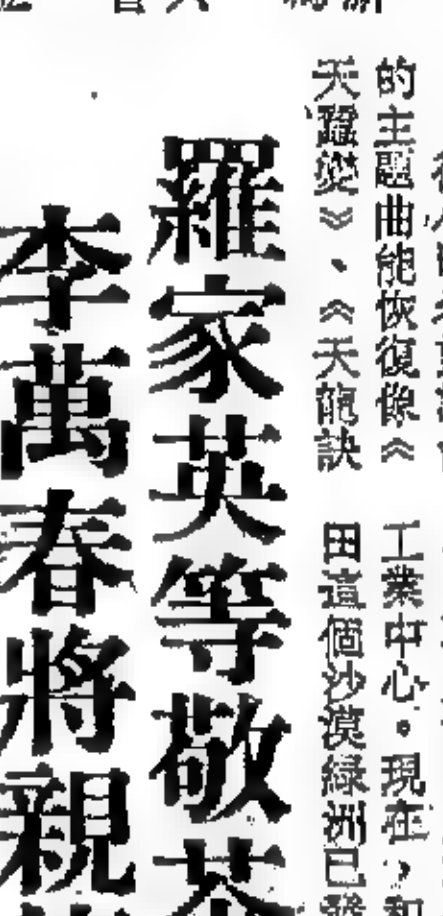 的主題曲能恢復像《
天蠶變》、《天龍訣
工業中心。現在，和
田這個沙漠綠洲已發
羅家英等敬茶
李萬春將親